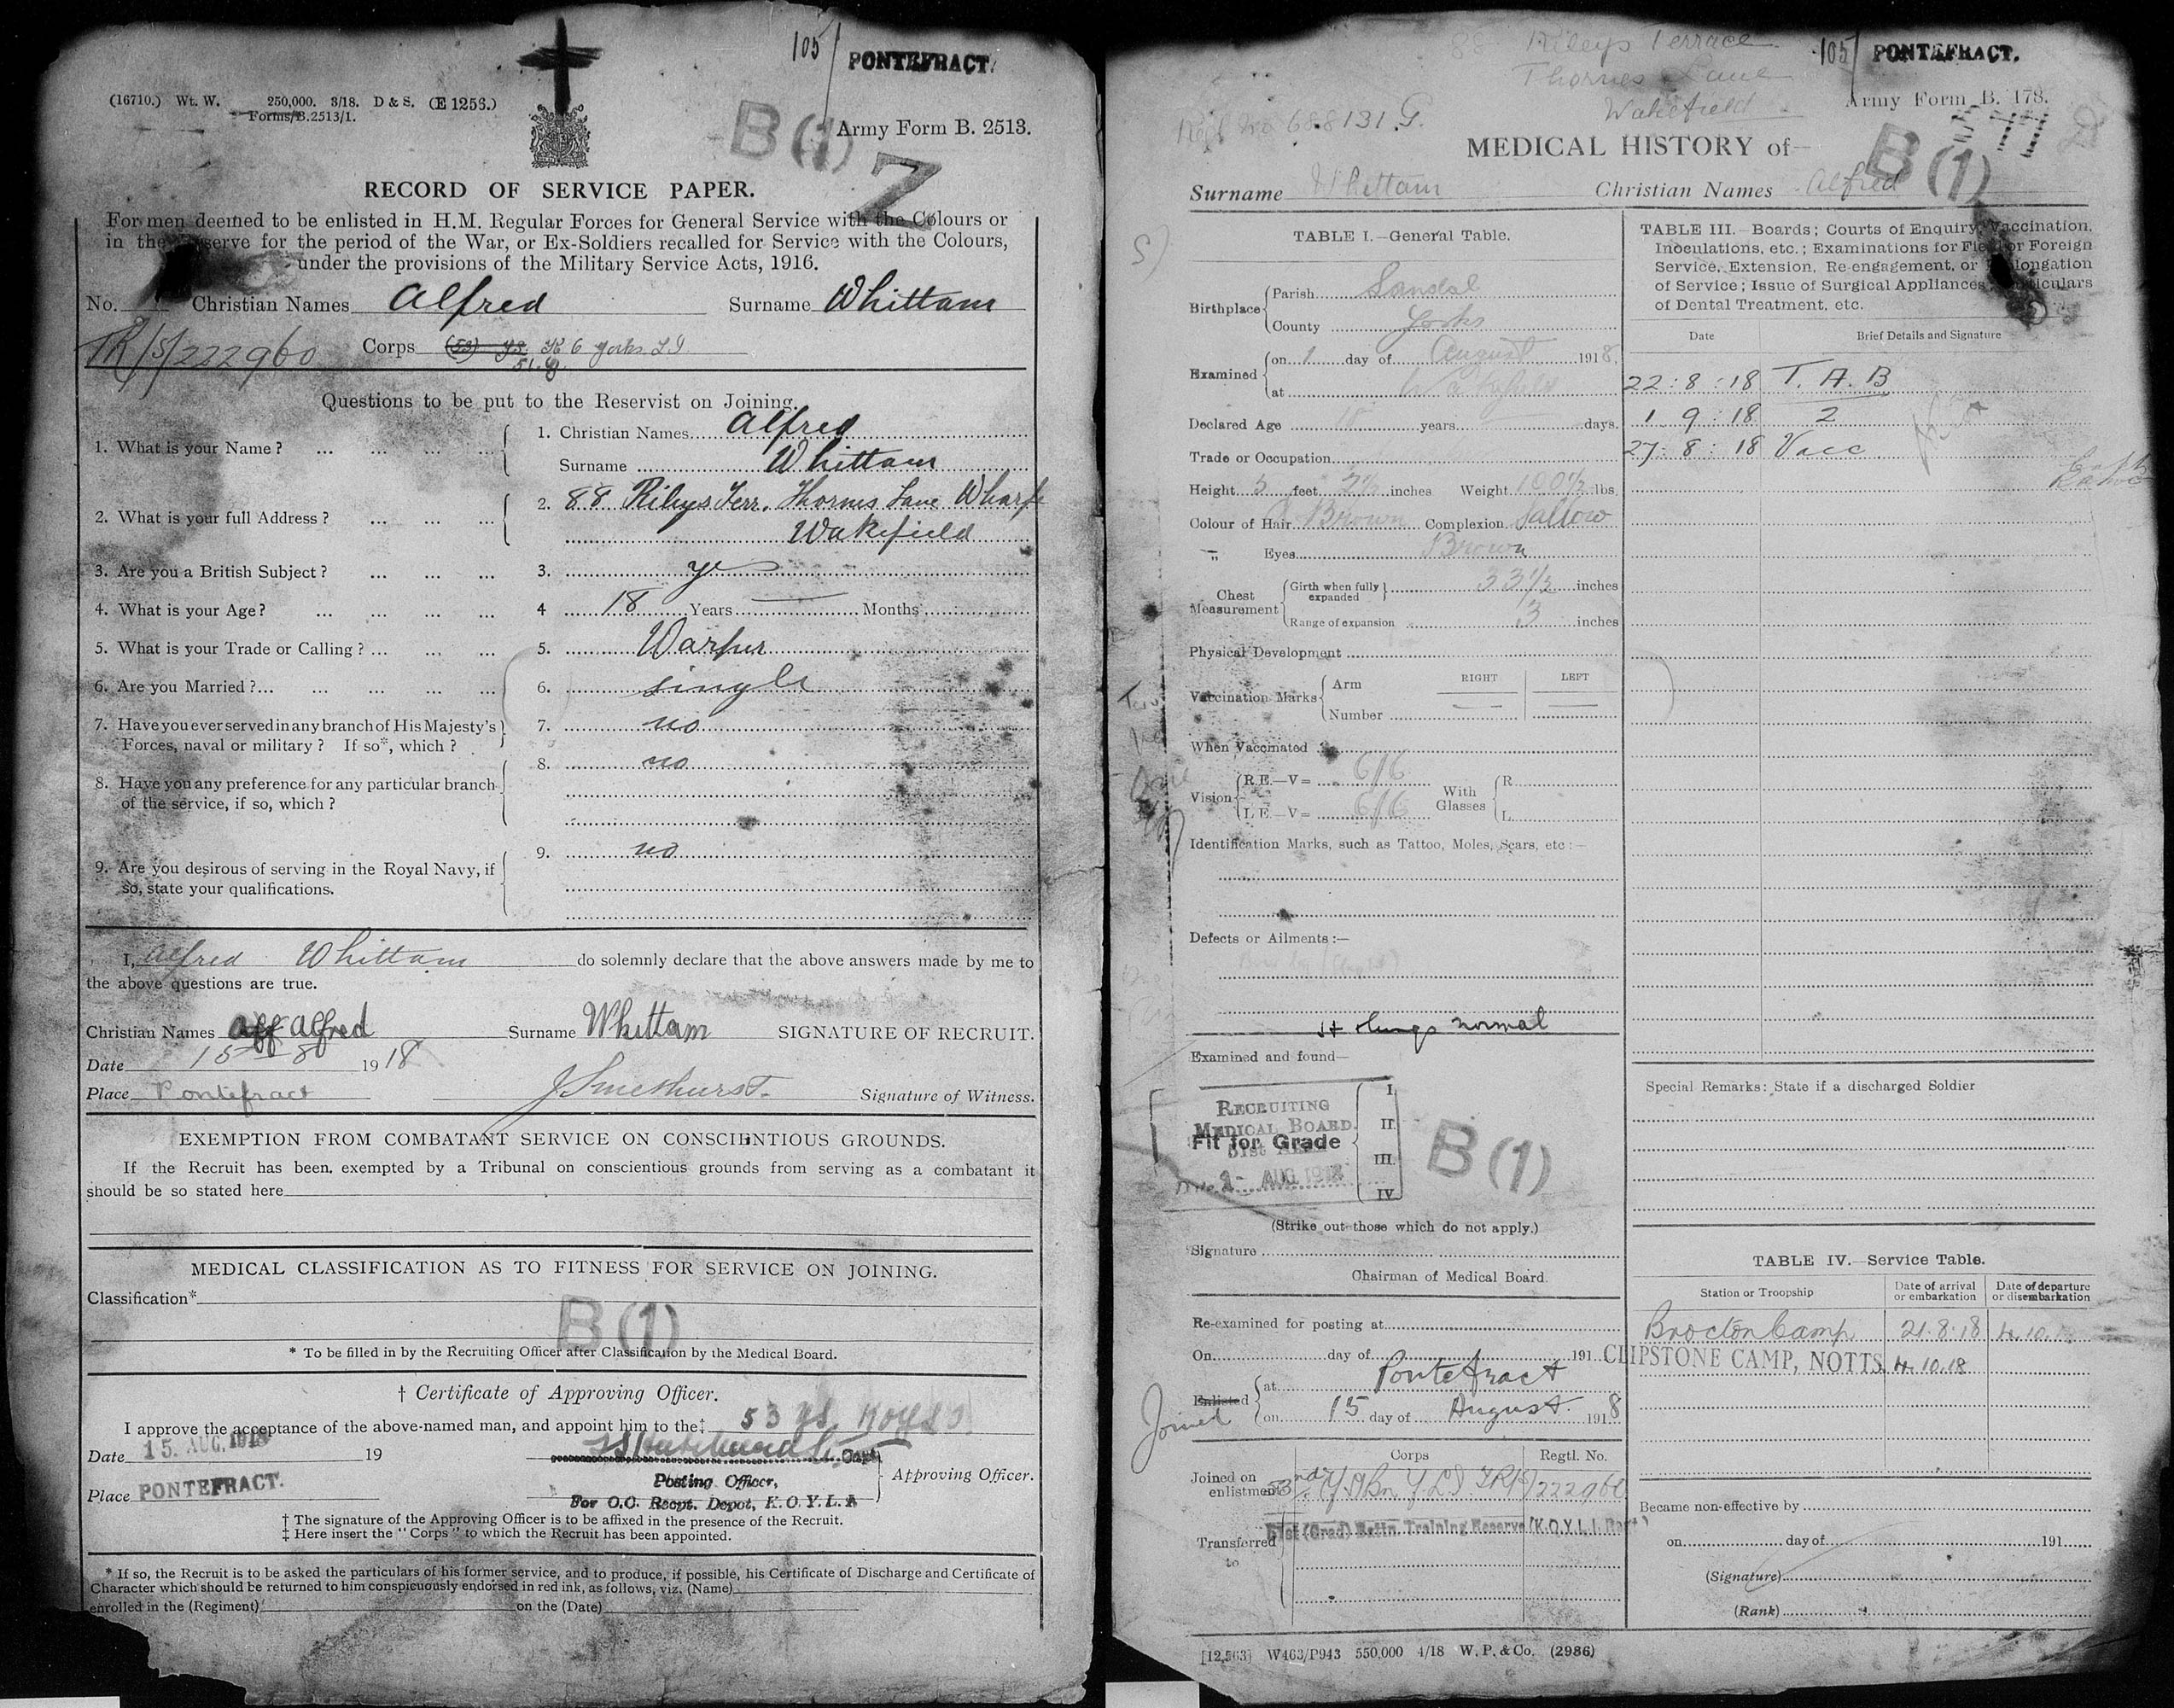 105/ PONTEFRACT.
(16710.) Wt. W. 250,000. 3/18. D & S. (E 1256.)
Forms/B.2513/1.
B (1)
Army Form B. 2513.
Z
RECORD OF SERVICE PAPER.
For men deemed to be enlisted in H.M. Regular Forces for General Service with the Colours or
in the Reserve for the period of the War, or Ex-Soldiers recalled for Service with the Colours,
under the provisions of the Military Service Acts, 1916.
No. Christian Names Alfred Surname Whittam
TR/5/222960 Corps (53) YS K O Yorks L I
51. G.
Questions to be put to the Reservist on Joining.
1. What is your Name ? ... ... ... ... 1. Christian Names Alfred
Surname Whittam
2. What is your full Address ? ... ... ... 2. 88 Rileys Terr. Thornes Lane Wharfe
Wakefield
3. Are you a British Subject ? ... ... ... 3. yes
4. What is your Age ? ... ... ... ... 4 18 Years — Months
5. What is your Trade or Calling ? ... ... ... 5. Warper
6. Are you Married ?... ... ... ... ... 6. single
7. Have you ever served in any branch of His Majesty's 7. no
Forces, naval or military ? If so*, which ?
8. Have you any preference for any particular branch 8. no
of the service, if so, which ?
9. Are you desirous of serving in the Royal Navy, if 9. no
so, state your qualifications.
I, Alfred Whittam do solemnly declare that the above answers made by me to
the above questions are true.
Christian Names Alf Alfred Surname Whittam SIGNATURE OF RECRUIT.
Date 15 – 8 1918
Place Pontefract J Smethurst. Signature of Witness.
EXEMPTION FROM COMBATANT SERVICE ON CONSCIENTIOUS GROUNDS.
If the Recruit has been exempted by a Tribunal on conscientious grounds from serving as a combatant it
should be so stated here
MEDICAL CLASSIFICATION AS TO FITNESS FOR SERVICE ON JOINING.
Classification*
B (1)
* To be filled in by the Recruiting Officer after Classification by the Medical Board.
† Certificate of Approving Officer.
I approve the acceptance of the above-named man, and appoint him to the‡ 53 YS KOYLI
Date 15. AUG. 1918 19 Capt
Place PONTEFRACT. Posting Officer, Approving Officer.
For O.C. Recpt. Depot, K.O.Y.L.I
† The signature of the Approving Officer is to be affixed in the presence of the Recruit.
‡ Here insert the "Corps" to which the Recruit has been appointed.
* If so, the Recruit is to be asked the particulars of his former service, and to produce, if possible, his Certificate of Discharge and Certificate of
Character which should be returned to him conspicuously endorsed in red ink, as follows, viz. (Name)
enrolled in the (Regiment) on the (Date)
88 Rileys Terrace 105/ PONTEFRACT.
Thornes Lane
Wakefield Army Form B. 178.
Regl No 688131 G.
MEDICAL HISTORY of—
B (1)
Surname Whittam Christian Names Alfred
TABLE I.—General Table.
Birthplace Parish Sandal
County Yorks
Examined on 1 day of August 1918.
at Wakefield
Declared Age 18 years days.
Trade or Occupation
Height 5 feet 2½ inches Weight 100½ lbs.
Colour of Hair Brown Complexion Sallow
„ Eyes Brown
Chest Measurement Girth when fully expanded 33½ inches
Range of expansion 3 inches
Physical Development
Vaccination Marks Arm RIGHT LEFT
Number — —
When Vaccinated
Vision R.E.—V= 6/6 With Glasses R.
L.E.—V= 6/6 L.
Identification Marks, such as Tattoo, Moles, Scars, etc :—
Defects or Ailments :—
Ht lungs normal
Examined and found—
RECRUITING
MEDICAL BOARD.
Fit for Grade I. II. III. IV.
AUG 1918
B (1)
(Strike out those which do not apply.)
Signature
Chairman of Medical Board.
Re-examined for posting at
On day of 191
Enlisted Joined at Pontefract
on 15 day of August 1918
Corps Regtl. No.
Joined on enlistment 53rd Y S Bn Y L I TR/5/222960
Transferred to 51st (Grad) Battn. Training Reserve (K.O.Y.L.I. Regt)
[12,563] W463/P943 550,000 4/18 W. P. & Co. (2986)
TABLE III.—Boards; Courts of Enquiry, Vaccination,
Inoculations, etc.; Examinations for Field or Foreign
Service, Extension, Re-engagement, or Prolongation
of Service; Issue of Surgical Appliances; Particulars
of Dental Treatment, etc.
Date Brief Details and Signature
22 : 8 : 18 T. A. B
1 9 : 18 2
27 : 8 : 18 Vacc
Special Remarks: State if a discharged Soldier
TABLE IV.—Service Table.
Station or Troopship Date of arrival or embarkation Date of departure or disembarkation
Brocton Camp 21.8.18 4.10.
CLIPSTONE CAMP, NOTTS. 4.10.18
Became non-effective by
on day of 191
(Signature)
(Rank)